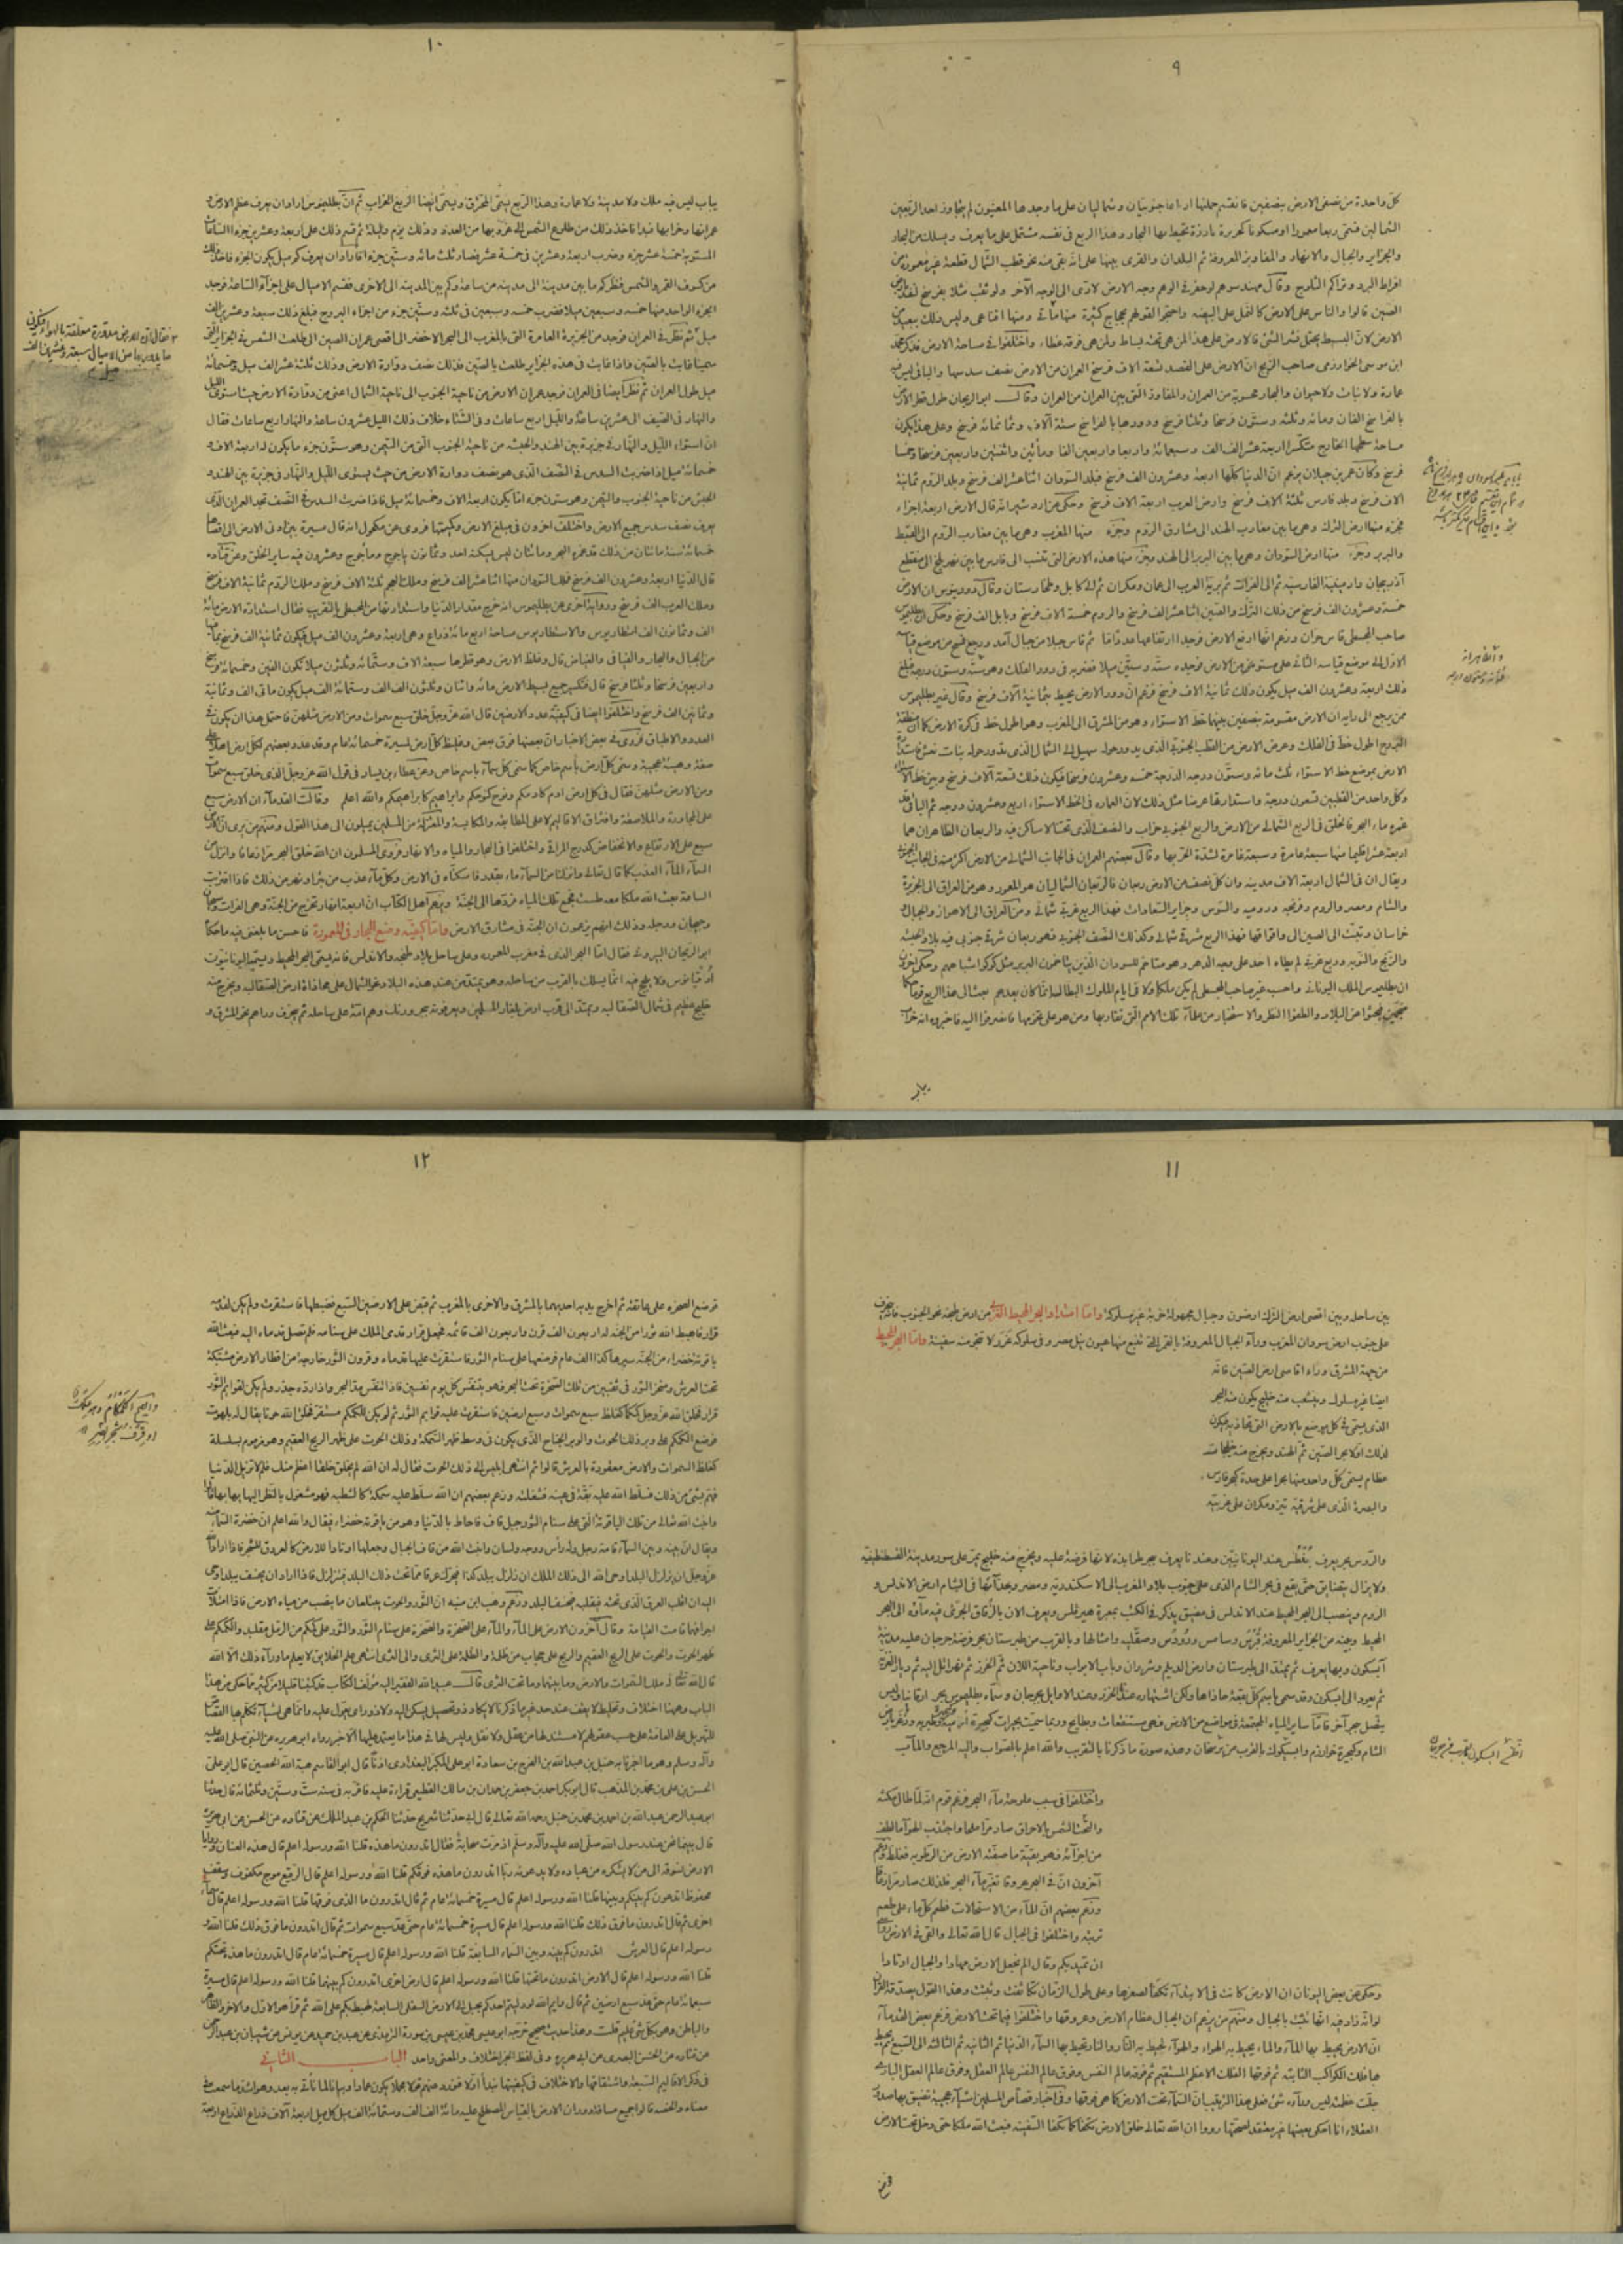 ٩
كل واحدة من نصفى الارض بنصفين فانقسم جملتها ارباعا جنوبيان وشماليان على ما وجدها المعنيون لم يتجاوز احد الربعين
الشماليين فسمى ربعا معمورا او مسكونا كجزيرة بارزة تحيط بها البحار وهذا الربع فى نفسه مشتمل على ما يعرف ويسلك من البحار
والجزاير والجبال والانهار والمفاوز المعروفة ثم البلدان والقرى بينها على انه بقى منه نحو قطب الشمال قطعة غير معمورة من
افراط البرد وتراكم الثلوج وقال مهندسوهم لو حفر فى الوهم وجه الارض لادى الى الوجه الآخر ولو ثقب مثلا بفوسنج لنفذ بارض
الصين قالوا والناس على الارض كالنمل على البيضة واحتجوا لقولهم بحجاج كثيرة منها ما
ابن موسى الخوارزمى صاحب الزيج ان الارض على القصد تسعة الاف فرسخ العمران من الارض نصف سدسها والباقى ليس فيه
عمارة ولا نبات ولا حيوان والبحار محسوبة من العمران والمفاوز التى بين العمران من العمران وقال ابو الريحان طول قطر الارض
بالفراسخ الفان ومائة وثلثة وستون فرسخا وثلثا فرسخ ودورها بالفراسخ ستة آلاف وثمانمائة فرسخ وعلى هذا يكون
مساحة سطحها الخارج متكسرا اربعة عشر الف الف وسبعمائة واربعا واربعين الفا ومأتين واثنتين واربعين فرسخا وخمسا
فرسخ وكان عمر بن جيلان يزعم ان الدنيا كلها اربعة وعشرون الف فرسخ فبلد السودان اثنا عشر الف فرسخ وبلد الروم ثمانية
الاف فرسخ وبلد فارس ثلثة الاف فرسخ وارض العرب اربعة الاف فرسخ وحكى عن ازدشير انه قال الارض اربعة اجزاء
فجزء منها ارض الترك وهى ما بين مغارب الهند الى مشارق الروم وجزء منها المغرب وهى ما بين مغارب الروم الى القبط
والبربر وجزء منها ارض السودان وهى ما بين البربر الى الهند وجزء منها هذه الارض التى تنسب الى فارس ما بين نهر بلخ الى منقطع
آذربيجان وارمينية الفارسية ثم الى الفرات ثم برية العرب الى عمان ومكران ثم الى كابل وطخارستان وقال دورينوس ان الارض
خمسة وعشرون الف فرسخ من ذلك الترك والصين اثنا عشر الف فرسخ والروم خمسة الاف فرسخ وبابل الف فرسخ وحكى ان بطليموس
صاحب المجسطى قاس حران وزعم انها ارفع الارض فوجد ارتفاعها
الاول الى موضع قياسه الثانى على مستو من الارض فوجده ستة وستين ميلا فضربه فى دور الفلك وهو ثلثمائة وستون درجة فبلغ
ذلك اربعة وعشرون الف ميل يكون ذلك ثمانية الاف فرسخ فزعم ان دور الارض يحيط بثمانية آلاف فرسخ وقال غير بطليموس
ممن يرجع الى رايه ان الارض مقسومة بنصفين بينهما خط الاستواء وهو من المشرق الى المغرب وهو اطول خط فى كرة الارض كما ان منطقة
البروج اطول خط فى الفلك وعرض الارض من القطب الجنوبى الذى يدور حوله سهيل الى الشمال الذى يدور حوله بنات نعش فاستدارة
الارض بموضع خط الاستواء ثلثمائة وستون درجة الدرجة خمسة وعشرون فرسخا فيكون ذلك تسعة آلاف فرسخ وبين خط الاستواء
وكل واحد من القطبين تسعون درجة واستدارتها عرضا مثل ذلك لان العمارة فى خط الاستواء اربع وعشرون درجة ثم الباقى قد
غمره ماء البحر فالخلق فى الربع الشمالى من الارض والربع الجنوبى خراب والنصف الذى تحتنا لا ساكن فيه والربعان الظاهران هما
اربعة عشر اقليما منها سبعة عامرة وسبعة غامرة لشدة الحر بها وقال بعضهم العمران فى الجانب الشمالى من الارض اكثر منه فى الجانب الجنوبى
ويقال ان فى الشمال اربعة الاف مدينة وان كل نصف من الارض ربعان فالربعان الشماليان هو المعمور وهو من العراق الى الجزيرة
والشام ومصر والروم وفرنجه ورومية والسوس وجزاير السعادات فهذا الربع غربى شمالى ومن العراق الى الاهواز والجبال
خراسان وتبت الى الصين الى واقواقها فهذا الربع شرقى شمالى وكذلك النصف الجنوبى فهو ربعان شرقى جنوبى فيه بلاد الحبشة
والزنج والنوبة وربع غربى لم يطاه احد على وجه الدهر وهو متاخم للسودان الذين يتاخمون البربر مثل كوكو واشباههم وحكى آخرون
ان بطليموس الملك اليونانى واحسبه غير صاحب المجسطى لم يكن ملكا ولا فى ايام الملوك البطالسة انما كان بعدهم بعث الى هذا الربع قوما
منجمين فبحثوا عن البلاد والطفوا النظر والاستخبار من علماء تلك الامم التى تقاربها ومن هو على تخومها فانصرفوا اليه فاخبروه انه خراب
يباب
١٠
يباب ليس فيه ملك ولا مدينة ولا عمارة وهذا الربع يسمى المحترق ويسمى ايضا الربع الخراب ثم ان بطليموس اراد ان يعرف عظم الارض و
عمرانها وخرابها فبدا فاخذ ذلك من طلوع الشمس الى غروبها من العدد وذلك يوم وليلة ثم قسم ذلك على اربعة وعشرين جزءا الساعات
المستوية خمسة عشر جزء وضرب اربعة وعشرين فى خمسة عشر فصار ثلثمائة وستين جزء فاراد ان يعرف كم ميل يكون الجزء فاخذ ذلك
من كسوف القمر والشمس فنظر كم ما بين مدينة الى مدينة من ساعة وكم بين المدينة الى الاخرى فقسم الاميال على اجزاء الساعة فوجد
الجزء الواحد منها خمسة وسبعين ميلا فضرب خمسة وسبعين فى ثلثمائة وستين جزء من اجزاء البروج فبلغ ذلك سبعة وعشرين الف
ميل ثم نظر فى العمران فوجد من الجزيرة العامرة التى بالمغرب الى البحر الاخضر الى اقصى عمران الصين اذا طلعت الشمس فى الجزاير التى
سمينا غابت بالصين واذا غابت فى هذه الجزاير طلعت بالصين فذلك نصف دوارة الارض وذلك ثلثة عشر الف ميل وخمسمائة
ميل طول العمران ثم نظر ايضا فى العمران فوجد عمران الارض من ناحية الجنوب الى ناحية الشمال اعنى من دوارة الارض حيث استوى الليل
والنهار فى الصيف الى عشرين ساعة والليل اربع ساعات وفى الشتاء خلاف ذلك الليل عشرون ساعة والنهار اربع ساعات فقال
ان استواء الليل والنهار فى جزيرة بين الهند والحبشة من ناحية الجنوب التى من التيمن وهو ستون جزء ما يكون له اربعة الاف و
خمسمائة ميل فاذا ضربت السدس فى النصف الذى هو نصف دوارة الارض من حيث يستوى الليل والنهار فى جزيرة بين الهند و
يعرف نصف سدس جميع الارض واختلف آخرون فى مبلغ الارض وكميتها فروى عن مكحول انه قال مسيرة ما بين ادنى الارض الى اقصاها
خمسمائة سنة مائتان من ذلك قد غمره البحر ومائتان ليس يسكنه احد وثمانون ياجوج وماجوج وعشرون فيه ساير الخلق وعن قتادة
قال الدنيا اربعة وعشرون الف فرسخ فملك السودان منها اثنا عشر الف فرسخ وملك العجم ثلثة الاف فرسخ وملك الروم ثمانية الاف فرسخ
وملك العرب الف فرسخ ورواية اخرى عن بطليموس انه خرج مقدار الدنيا واستدارتها من المجسطى بالتقريب فقال استدارة الارض مائة
الف وثمانون الف اسطاديوس والاسطاديوس مساحة اربع مائة ذراع وهى اربعة وعشرون الف ميل فيكون ثمانية الف فرسخ بما فيها
من الجبال والبحار والفيافى والغياض قال وغلظ الارض وهو قطرها سبعة الاف وستمائة وثلثون ميلا تكون الفين وخمسمائة فرسخ
واربعين فرسخا وثلثا فرسخ قال فتكسير جميع بسيط الارض مائة واثنان وثلثون الف الف وستمائة الف ميل يكون مائتى الف وثمانية
وثمانين الف فرسخ واختلفوا ايضا فى كيفية عدد الارضين قال الله عز وجل خلق سبع سموات ومن الارض مثلهن فاحتمل هذا ان يكون فى
العدد والاطباق فروى فى بعض الاخبار ان بعضها فوق بعض وغلظ كل ارض مسيرة خمسمائة عام وقد عدد بعضهم لكل ارض اهلا على
صفة وهيئة عجيبة وسمى كل ارض باسم خاص كما سمى كل سماء باسم خاص وعن عطاء بن يسار فى قول الله عز وجل الذى خلق سبع سموات
ومن الارض مثلهن فقال فى كل ارض آدم كآدمكم ونوح كنوحكم وابراهيم كابراهيمكم والله اعلم وقالت القدماء ان الارض سبع
على المجاورة والملاصقة وافتراق الاقاليم لا على المطابقة والمكابسة والمعتزلة من المسلمين يميلون الى هذا القول ومنهم من يرى ان الارض
سبع على الارتفاع والانخفاض كدرج المراقى واختلفوا فى البحار والمياه والانهار فروى المسلمون ان الله خلق البحر مرا زعاقا وانزل من
السماء الماء العذب كما قال تعالى وانزلنا من السماء ماء بقدر فاسكناه فى الارض وكل ماء عذب من بئر او نهر من ذلك فاذا اقتربت
الساعة بعث الله ملكا معه طست فجمع تلك المياه فردها الى الجنة ويزعم اهل الكتاب ان اربعة انهار تخرج من الجنة وهى الفرات وسيحان
وجيحان ودجلة وذلك انهم يزعمون ان الجنة فى مشارق الارض واما كيفية وضع البحار فى المعمورة فاحسن ما بلغنى فيه ما حكاه
ابو الريحان البيرونى فقال اما البحر الذى فى مغرب المعمورة وعلى ساحل بلاد طنجه والاندلس فانه يسمى البحر المحيط ويسميه اليونانيون
اوقيانوس ولا يلج فيه انما يسلك بالقرب من ساحله وهو يمتد من عند هذه البلاد نحو الشمال على محاذاة ارض الصقالبة ويخرج منه
خليج عظيم فى شمال الصقالبة ويمتد الى قرب ارض بلغار المسلمين ويعرفونه بحر ورنك وهم امة على ساحله ثم ينحرف وراءهم نحو المشرق و
١١
بين ساحله وبين اقصى ارض الترك ارضون وجبال مجهولة خربة غير مسلوكة واما امتداد البحر المحيط الغربى من ارض طنجه نحو الجنوب فانه ينحرف
على جنوب ارض سودان المغرب وراء الجبال المعروفة بالقمر التى تنبع منها عيون نيل مصر وفى سلوكه غرر لا تنجو منه سفينة واما البحر المحيط
من جهة المشرق وراء اقاصى ارض الصين فانه
ايضا غير مسلوك ويتشعب منه خليج يكون منه البحر
الذى يسمى فى كل موضع بالارض التى تحاذيه فيكون
لذلك اولا بحر الصين ثم الهند ويخرج منه خلجان
عظام يسمى كل واحد منها بحرا على حدة كبحر فارس
والبصرة الذى على شرقيه تيز ومكران على غربيه
والروس يعرف بنطس عند اليونانيين وعندنا يعرف ببحر طرابزنده لانها فرضة عليه ويخرج منه خليج يمر على سور مدينة القسطنطينية
ولا يزال يتضايق حتى يقع فى بحر الشام الذى على جنوب بلاد المغرب الى الاسكندرية ومصر وبحذائها فى الشمال ارض الاندلس و
الروم وينصب الى البحر المحيط عند الاندلس فى مضيق يذكر فى الكتب بمعبرة هيرقلس ويعرف الآن بالزقاق يجرى فيه ماؤه الى البحر
المحيط وفيه من الجزاير المعروفة قبرس وسامس ورودس وصقلية وامثالها وبالقرب من طبرستان بحر فرضة جرجان عليه مدينة
آبسكون وبها يعرف ثم يمتد الى طبرستان وارض الديلم وشروان وباب الابواب وناحية اللان ثم الخزر ثم نهر اتل اليه ثم ديار الغزية
ثم يعود الى ابسكون وقد سمى باسم كل بقعة حاذاها ولكن اشتهاره عندنا بالخزر وعند الاوايل بجرجان وسماه بطليموس بحر ارقانيا وليس
يتصل ببحر آخر فاما ساير المياه المجتمعة فى مواضع من الارض فهى مستنقعات وبطايح وربما سميت بحيرات كبحيرة
الشام وبحيرة خوارزم وايسكوك بالقرب من برسخان وهذه صورة ما ذكرنا بالتقريب والله اعلم بالصواب واليه المرجع والمآب
واختلفوا فى سبب ملوحة ماء البحر فزعم قوم انه لما طال مكثه
والحت الشمس بالاحراق صار مرا ملحا واجتذب الهواء ما لطف
من اجزائه فهو بقية ما صفته الارض من الرطوبة فغلظ وزعم
آخرون ان فى البحر عروقا تغير ماء البحر فلذلك صار مرا زعاقا
وزعم بعضهم ان الماء من الاستحالات فطعم كل ماء على طعم
تربته واختلفوا فى الجبال قال الله تعالى والقى فى الارض رواسى
ان تميد بكم وقال الم نجعل الارض مهادا والجبال اوتادا
وحكى عن بعض اليونان ان الارض كانت فى الابتداء تكفأ لصغرها وعلى طول الزمان تكاثفت وثبتت وهذا القول يصدقه القرآن
لو انه زاد فيه انها ثبتت بالجبال ومنهم من يزعم ان الجبال عظام الارض وعروقها واختلفوا فيما تحت الارض فزعم بعض القدماء
ان الارض يحيط بها الماء والماء يحيط به الهواء والهواء يحيط به النار والنار تحيط بها السماء الدنيا ثم الثانية ثم الثالثة الى السبع ثم يحيط
بها فلك الكواكب الثابتة ثم فوقها الفلك الاعظم المستقيم ثم فوقه عالم النفس وفوق عالم النفس عالم العقل وفوق عالم العقل البارى
جلت عظمته ليس وراءه شىء فعلى هذا الترتيب ان السماء تحت الارض كما هى فوقها وفى اخبار قصاص المسلمين اشياء عجيبة تضيق بها صدور
العقلاء انا احكى بعضها غير معتقد لصحتها رووا ان الله تعالى خلق الارض تكفأ كما تكفأ السفينة فبعث الله ملكا حتى دخل تحت الارض
فوضع
١٢
فوضع الصخرة على عاتقه ثم اخرج يديه احديهما بالمشرق والاخرى بالمغرب ثم قبض على الارضين السبع فضبطها فاستقرت ولم يكن لقدميه
قرار فاهبط الله ثورا من الجنة له اربعون الف قرن واربعون الف قائمة فجعل قرار قدمى الملك على سنامه فلم تصل قدماه اليه فبعث الله
ياقوتة خضراء من الجنة مسيرها كذا الف عام فوضعها على سنام الثور فاستقرت عليها قدماه وقرون الثور خارجة من اقطار الارض مشتبكة
تحت العرش ومنخر الثور فى ثقبين من تلك الصخرة تحت البحر فهو يتنفس كل يوم نفسين فاذا تنفس مد البحر واذا رده جزر ولم يكن لقوايم الثور
قرار فخلق الله عز وجل كمكما كغلظ سبع سموات وسبع ارضين فاستقرت عليه قوايم الثور ثم لم يكن للكمكم مستقر فخلق الله حوتا يقال له بلهوت
فوضع الكمكم على وبر ذلك الحوت والوبر الجناح الذى يكون فى وسط ظهر السمكة وذلك الحوت على ظهر الريح العقيم وهو مزموم بسلسلة
كغلظ السموات والارض معقودة بالعرش قالوا ثم انتهى ابليس الى ذلك الحوت فقال له ان الله لم يخلق خلقا اعظم منك فلم لا تزيل الدنيا
فهم بشىء من ذلك فسلط الله عليه بقة فى عينه فشغلته وزعم بعضهم ان الله سلط عليه سمكة كالشطبة فهو مشغول بالنظر اليها يهابها قالوا
وانبت الله تعالى من تلك الياقوتة التى على سنام الثور جبل قاف فاحاط بالدنيا وهو من ياقوتة خضراء فيقال والله اعلم ان خضرة السماء منه
ويقال ان بينه وبين السماء قامة رجل وله راس ووجه ولسان وانبت الله من قاف الجبال وجعلها اوتادا للارض كالعروق للشجر فاذا اراد الله
عز وجل ان يزلزل بلدا اوحى الله الى ذلك الملك ان زلزل ببلد كذا فيحرك عرقا مما تحت ذلك البلد فيتزلزل فاذا اراد ان يخسف ببلد اوحى
اليه ان اقلب العرق الذى تحته فيقلبه فيخسف البلد وزعم وهب ابن منبه ان الثور والحوت يبتلعان ما ينصب من مياه الارض فاذا امتلأت
اجوافهما قامت القيامة وقال آخرون الارض على الماء والماء على الصخرة والصخرة على سنام الثور والثور على كمكم من الرمل متلبد والكمكم على
ظهر الحوت والحوت على الريح العقيم والريح على حجاب من ظلمة والظلمة على الثرى والى الثرى انتهى علم الخلائق لا يعلم ما وراء ذلك الا الله
قال الله تعالى له ما فى السموات وما فى الارض وما بينهما وما تحت الثرى قال عبد الله الفقير اليه مؤلف الكتاب قد كتبنا قليلا من كثير مما حكى من هذا
الباب وههنا اختلاف وتخليط لا يقف عند حد غير ما ذكرنا لا يكاد ذو تحصيل يسكن اليه ولا ذو راى يعول عليه وانما هى اشياء تكلم بها القصاص
للتهويل على العامة على حسب عقولهم لا مستند لها من عقل ولا نقل وليس لها فى هذا ما يعتمد عليه الا خبر رواه ابو هريرة عن النبى صلى الله عليه
وآله وسلم وهو ما اخبرنا به حنبل بن عبد الله بن الفرج بن سعادة ابو على المكبر البغدادى اذنا قال ابو القاسم هبة الله الحصين قال ابو على
الحسن بن على بن محمد بن المذهب قال ابو بكر احمد بن جعفر بن حمدان بن مالك القطيعى قراءة عليه فاقر به فى سنة ست وستين وثلثمائة قال حدثنا
ابو عبد الرحمن عبد الله بن احمد بن محمد بن حنبل رحمه الله تعالى قال ابى حدثنا شريح حدثنا الحكم بن عبد الملك عن قتادة عن الحسن عن ابى هريرة
قال بينما نحن عند رسول الله صلى الله عليه وآله وسلم اذ مرت سحابة فقال اتدرون ما هذه قلنا الله ورسوله اعلم قال هذه العنان وروايا
الارض تسوقه الى من لا يشكره من عباده ولا يدعونه ربا اتدرون ما هذه فوقكم قلنا الله ورسوله اعلم قال الرقيع موج مكفوف وسقف
محفوظ اتدرون كم بينكم وبينها قلنا الله ورسوله اعلم قال مسيرة خمسمائة عام ثم قال اتدرون ما الذى فوقها قلنا الله ورسوله اعلم قال سماء
اخرى ثم قال اتدرون ما فوق ذلك قلنا الله ورسوله اعلم قال مسيرة خمسمائة عام حتى عد سبع سموات ثم قال اتدرون ما فوق ذلك قلنا الله و
رسوله اعلم قال العرش اتدرون كم بينه وبين السماء السابعة قلنا الله ورسوله اعلم قال مسيرة خمسمائة عام قال اتدرون ما هذه تحتكم
قلنا الله ورسوله اعلم قال الارض اتدرون ما تحتها قلنا الله ورسوله اعلم قال ارض اخرى اتدرون كم بينهما قلنا الله ورسوله اعلم قال مسيرة
سبعمائة عام حتى عد سبع ارضين ثم قال وايم الله لو دليتم احدكم بحبل الى الارض السفلى السابعة لهبط بكم على الله ثم قرأ هو الاول والآخر والظاهر
والباطن وهو بكل شىء عليم قلت وهذا حديث صحيح خرجه ابو عيسى محمد بن عيسى بن سورة الترمذى عن عبد بن حميد عن يونس عن شيبان بن عبد الرحمن
عن قتادة عن الحسن البصرى عن ابى هريرة وفى لفظ الخبر اختلاف والمعنى واحد الباب الثانى
فى ذكر الاقاليم السبعة واشتقاقها والاختلاف فى كيفيتها نبدأ اولا فنورد عنهم قولا مجملا يكون عمادا وبيانا لما نأتى به بعد وهو اشد ما سمعت فى
معناه والخصه قالوا جميع مسافة دوران الارض بالقياس المصطلح عليه مائة الف الف وستمائة الف ميل كل ميل اربعة آلاف ذراع الذراع اربعة